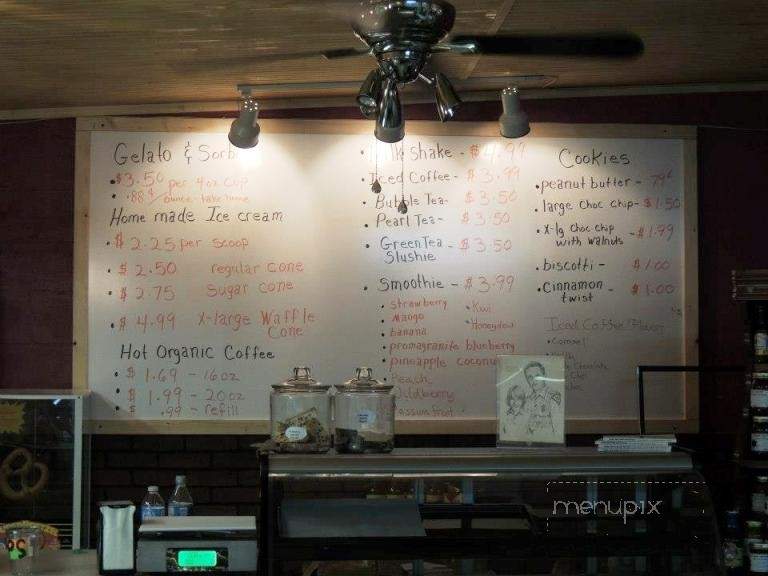 Gelato & Sorb
• $3.50 per 4oz cup
• .88¢/ounce - take home
Home made Ice cream
• $2.25 per scoop
• $2.50 regular cone
• $2.75 Sugar cone
• $4.99 X-large Waffle
Cone
Hot Organic Coffee
• $1.69 - 16oz
• $1.99 - 20oz
• $.99 - refill
• Milk Shake - $4.99
• Iced Coffee - $3.99
• Bubble Tea - $3.50
• Pearl Tea - $3.50
• Green Tea - $3.50
Slushie
• Smoothie - $3.99
• strawberry
• Mango
• banana
• promagranite blueberry
• pineapple coconut
• Peach
• Wildberry
• Passion fruit
• Kiwi
• Honeydew
Cookies
• peanut butter - 79¢
• large choc chip - $1.50
• X-lg choc chip - $1.99
with walnuts
• biscotti - $1.00
• Cinnamon - $1.00
twist
Iced Coffee Flavors
• Caramel
menupix